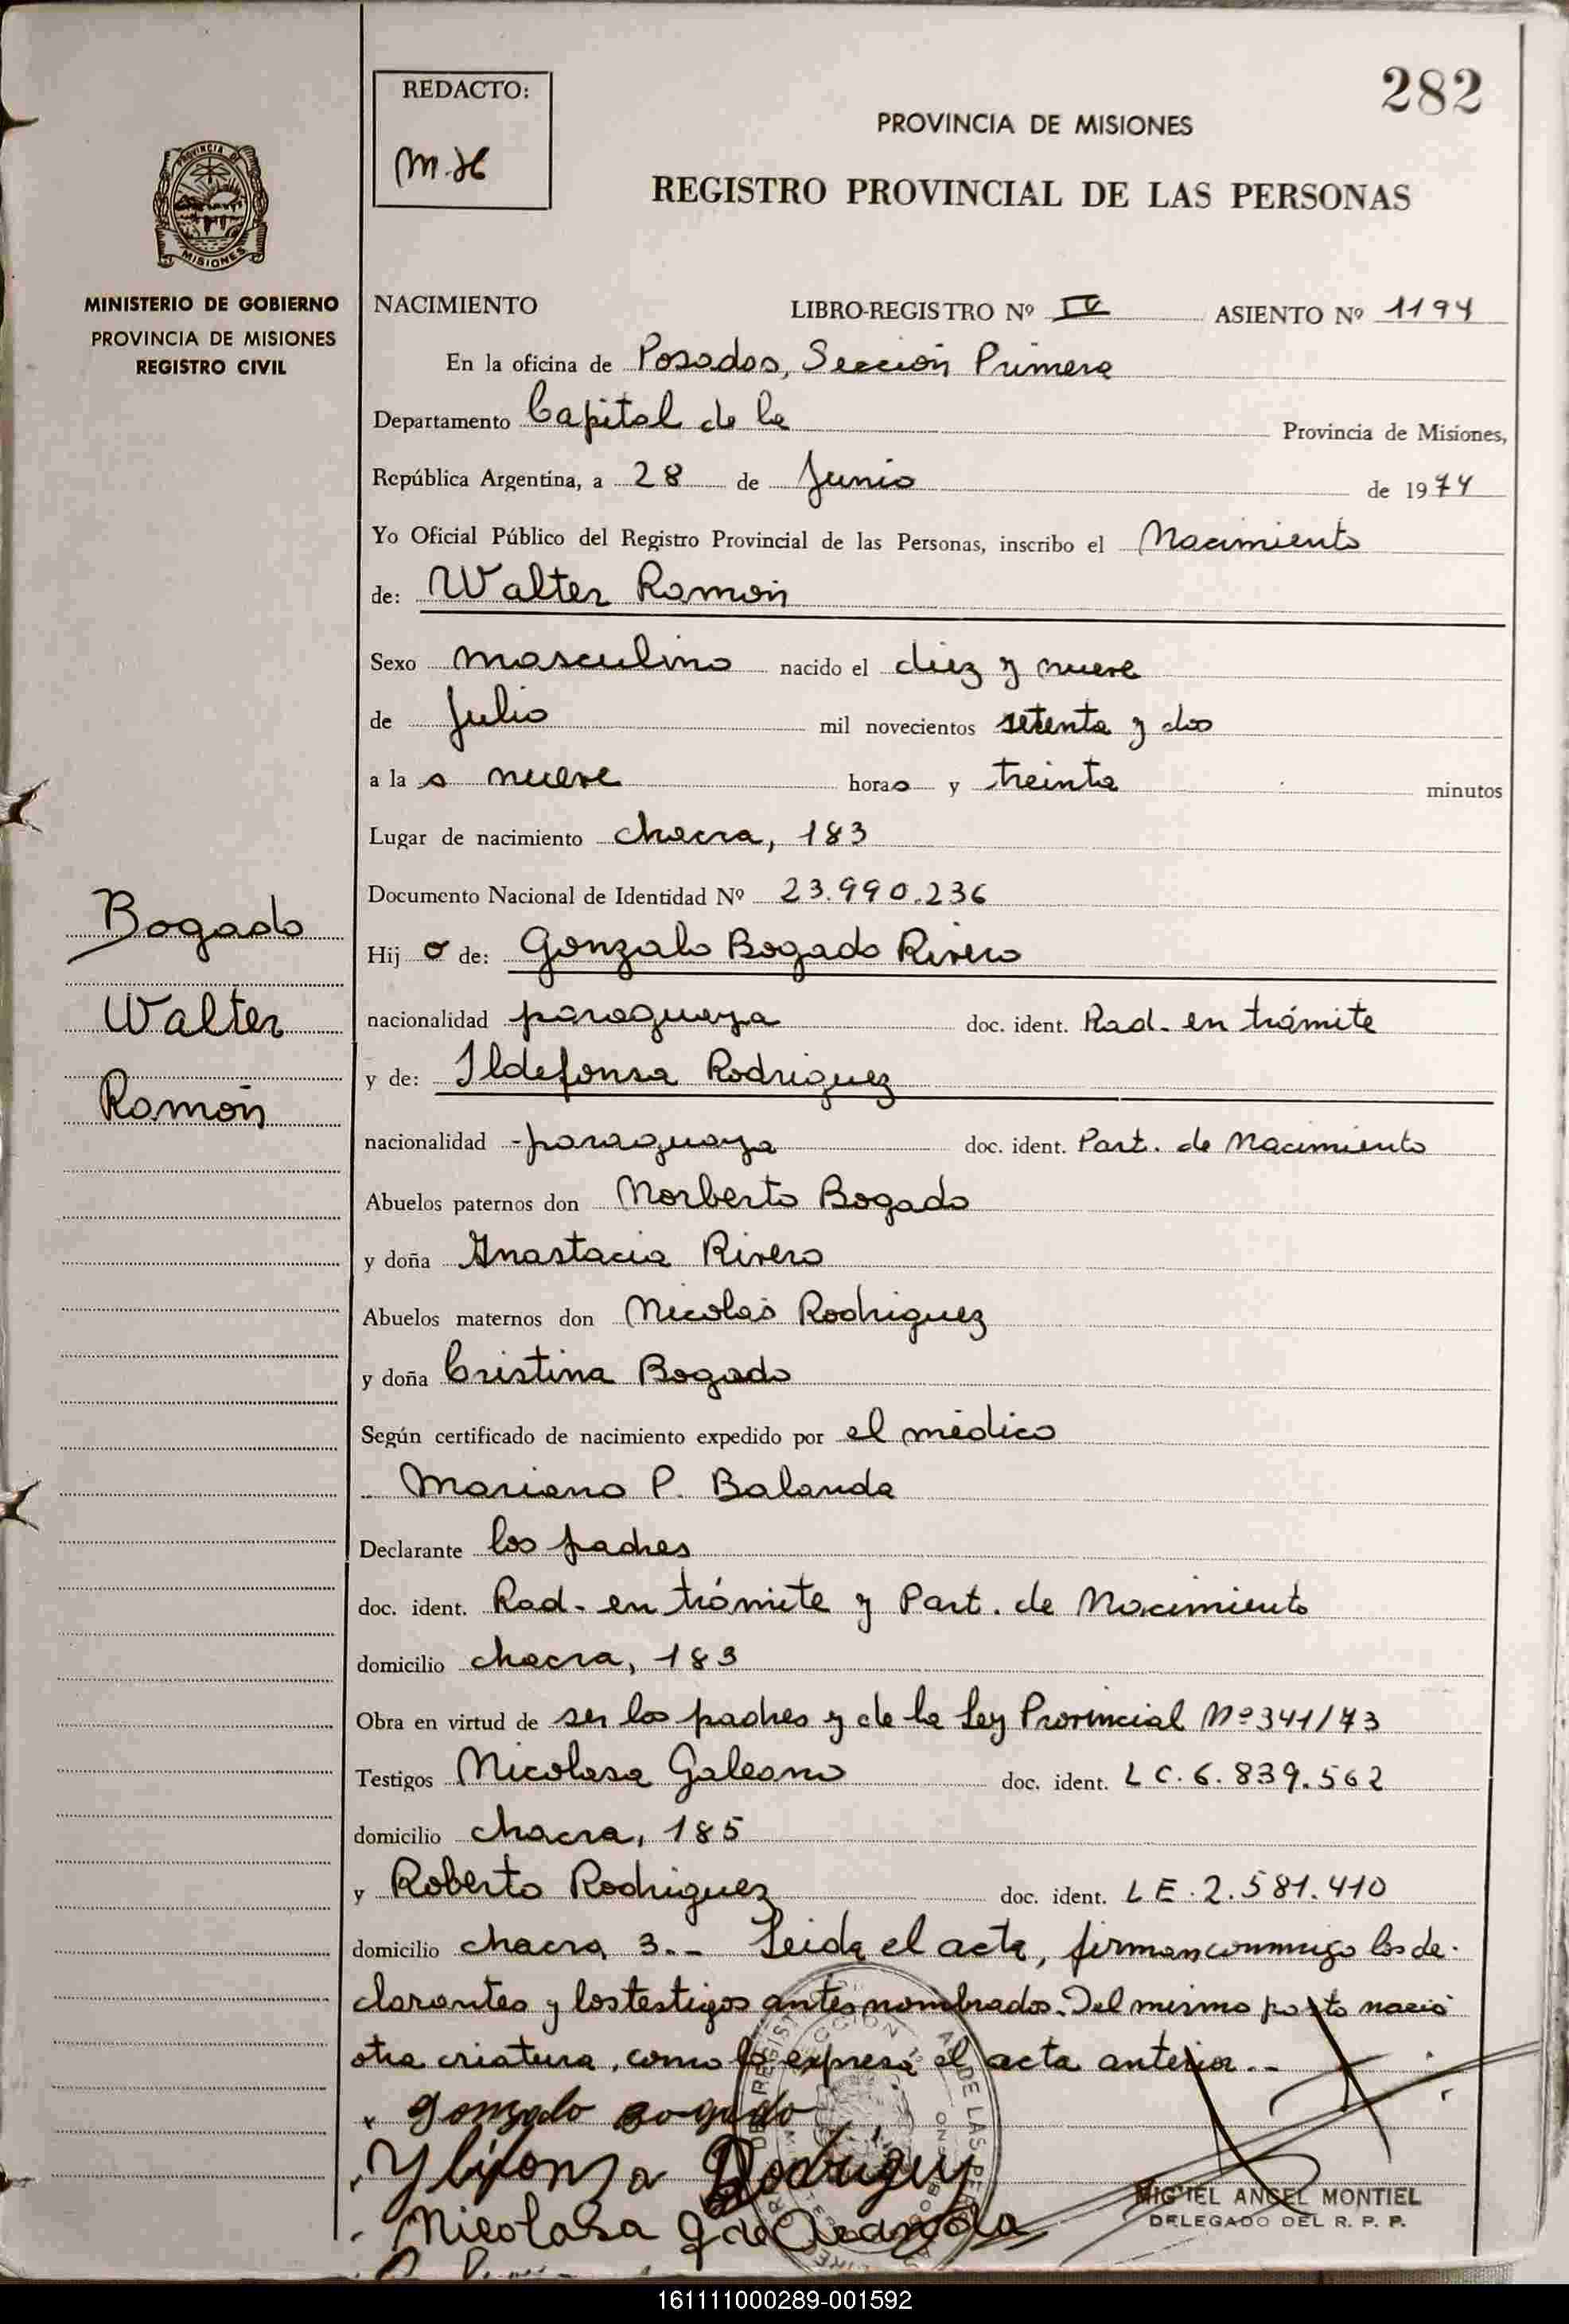 282
REDACTO:
M.H
PROVINCIA DE MISIONES
REGISTRO PROVINCIAL DE LAS PERSONAS
PROVINCIA DE
MISIONES
MINISTERIO DE GOBIERNO
PROVINCIA DE MISIONES
REGISTRO CIVIL
NACIMIENTO LIBRO-REGISTRO Nº IV ASIENTO Nº 1194
En la oficina de Posadas, Sección Primera
Departamento Capital de la Provincia de Misiones,
República Argentina, a 28 de Junio de 1974
Yo Oficial Público del Registro Provincial de las Personas, inscribo el Nacimiento
de: Walter Ramón
Sexo masculino nacido el diez y nueve
de Julio mil novecientos setenta y dos
a la s nueve horas y treinta minutos
Lugar de nacimiento chacra, 183
Documento Nacional de Identidad Nº 23.990.236
Bogado
Walter
Ramón
Hij o de: Gonzalo Bogado Rivero
nacionalidad paraguaya doc. ident. Rad. en trámite
y de: Ildefonsa Rodriguez
nacionalidad paraguaya doc. ident. Part. de Nacimiento
Abuelos paternos don Norberto Bogado
y doña Anastacia Rivero
Abuelos maternos don Nicolás Rodriguez
y doña Cristina Bogado
Según certificado de nacimiento expedido por el médico
Mariano P. Balanda
Declarante los padres
doc. ident. Rad. en trámite y Part. de Nacimiento
domicilio chacra, 183
Obra en virtud de ser los padres y de la Ley Provincial Nº 341/73
Testigos Nicolasa Galeano doc. ident. L C. 6.839.562
domicilio chacra, 185
y Roberto Rodriguez doc. ident. L E. 2.581.410
domicilio chacra 3.- Leida el acta, firman conmigo los de-
clarantes y los testigos antes nombrados. Del mismo parto nació
otra criatura, como lo expresa el acta anterior.-
Gonzalo Bogado
Rodriguez
Nicolasa G de
MIGUEL ANGEL MONTIEL
DELEGADO DEL R. P. P.
161111000289-001592